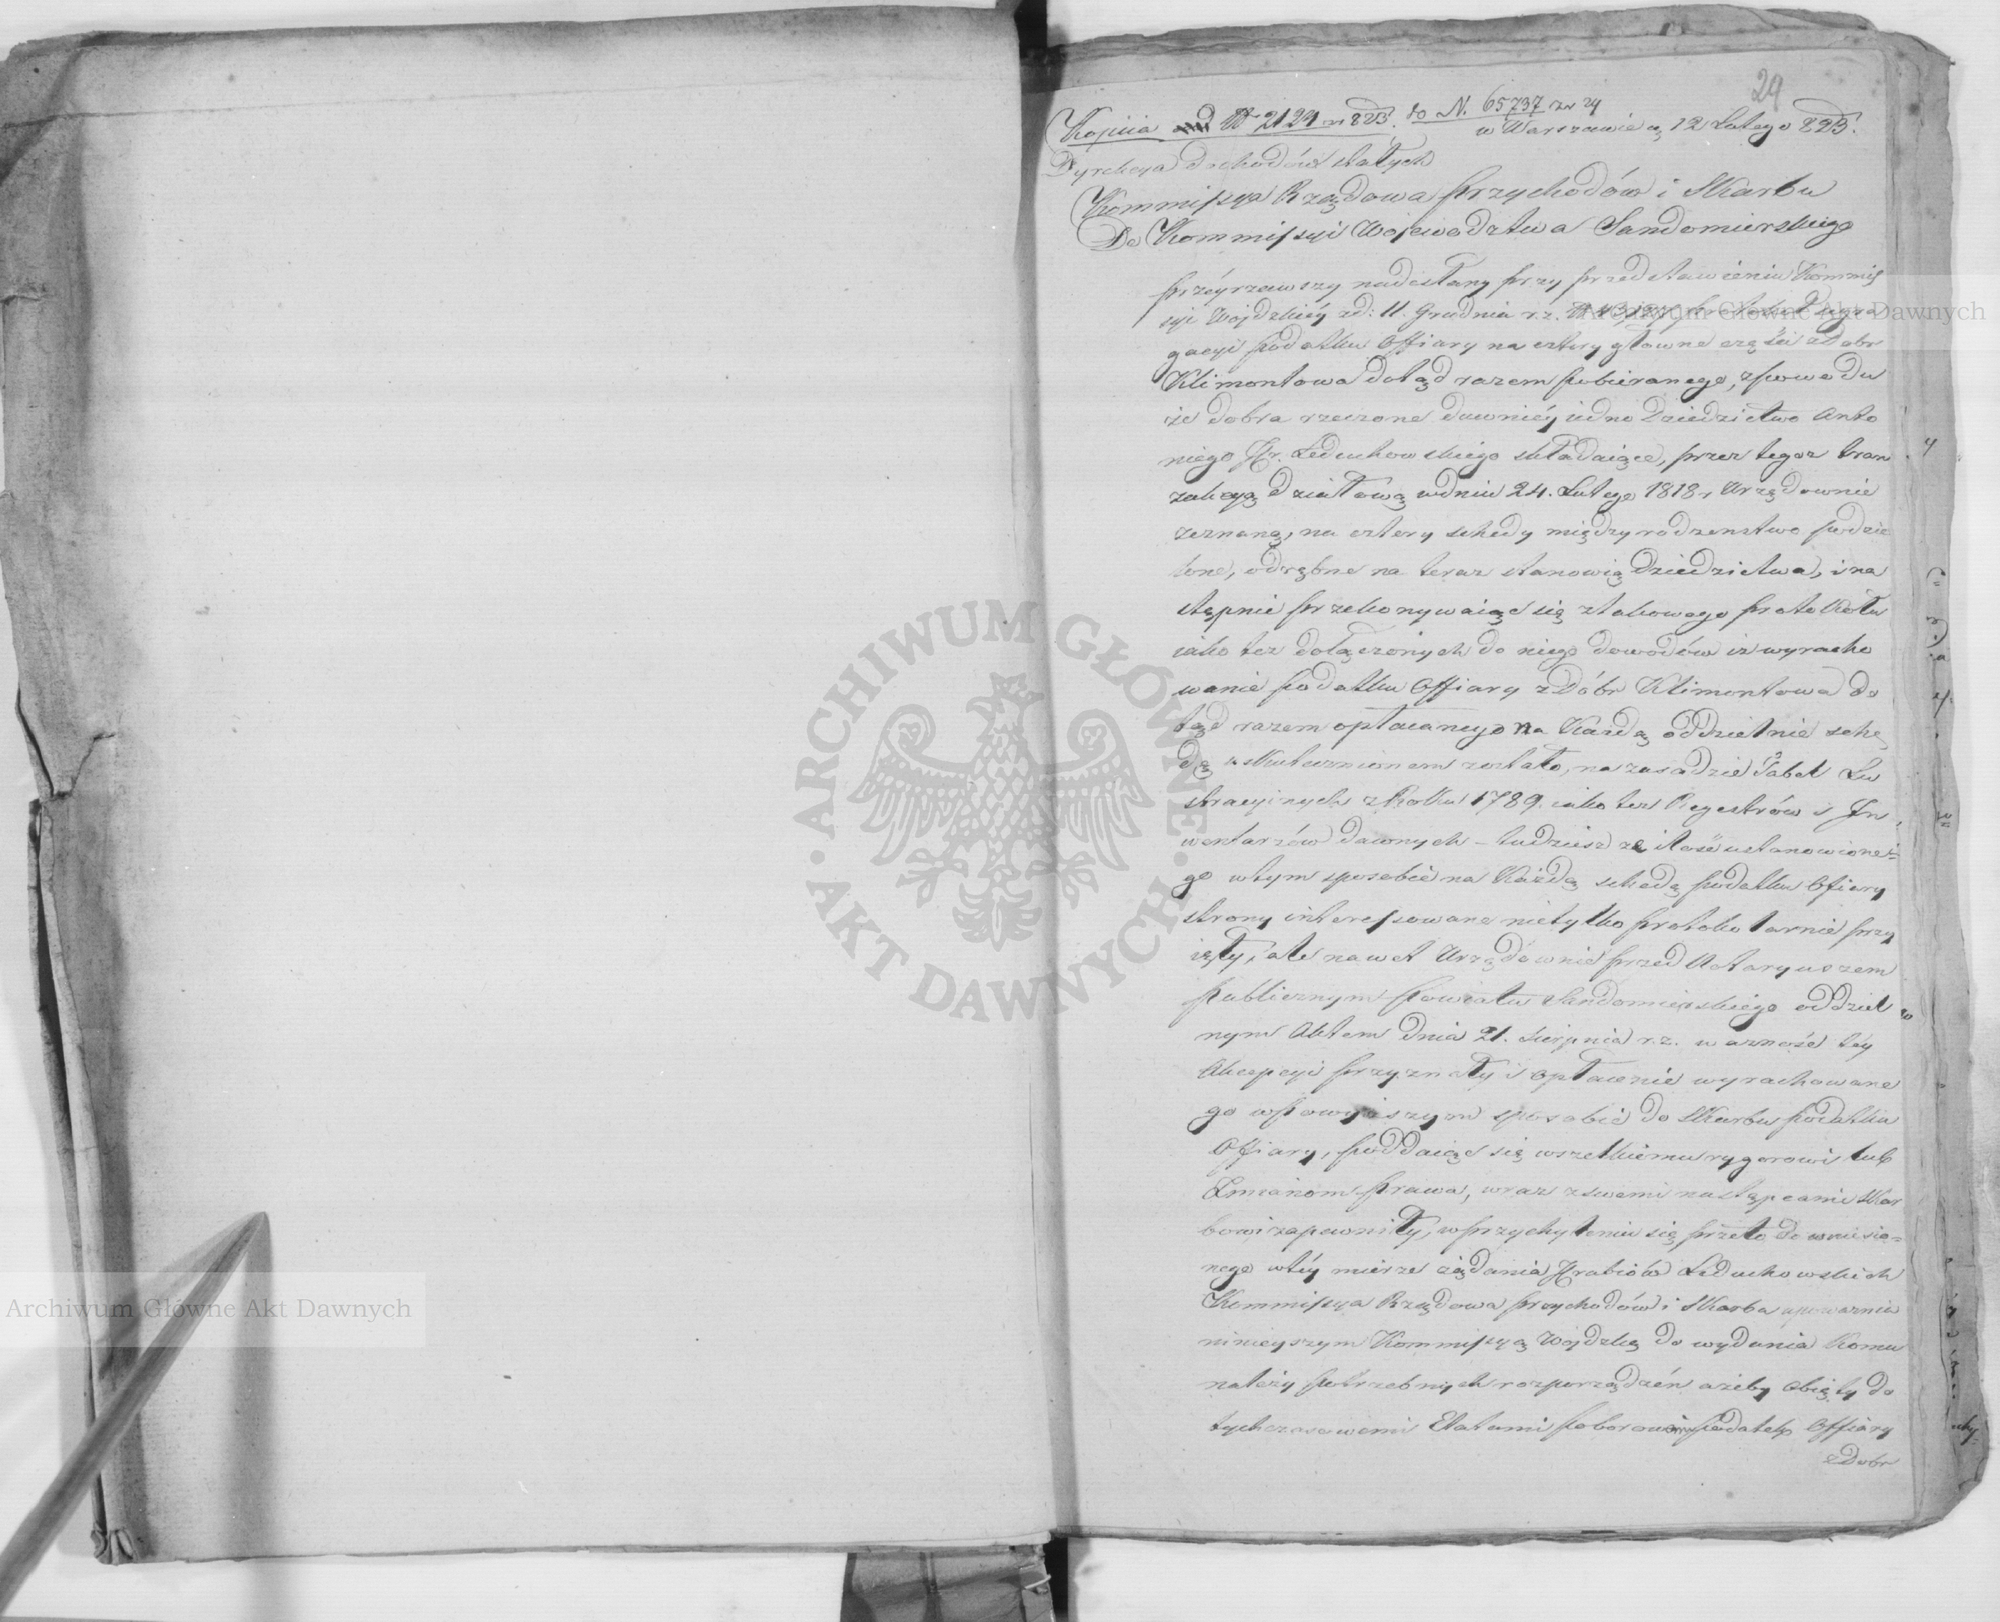 29
Kopiia N 2124 r 823. do N. 65737 zr 24
w Warszawie d. 12 Lutego 823.
Dyrekcya dochodów stałych
Kommissya Rządowa Przychodów i Skarbu
Do Kommissyi Województwa Sandomierskiego
Przéyrzawszy nadesłany przy przedstawieniu Kommis
syi Wojdzkiéy zd: 11. Grudnia r.z. protokuł segre
gacyi podatku Offiary na cztery główne części z Dobr
Klimontowa dotąd razem pobieranego, z powodu
że dobra rzeczone dawniéy iedno Dziedzictwo Anto
niego Hr. Leduchowskiego składaiące, przez tegoż tran
zakcyą działową w dniu 24. Lutego 1818 r Urzędownie
zeznaną, na cztery schedy między rodzenstwo podzie
lone, odrębne na teraz stanowią Dziedzictwa, i na
stępnie przekonywaiąc się z takowego protokółu
iako też dołączonych do niego dowodów iż wyracho
wanie podatku Offiary z Dóbr Klimontowa do
tąd razem opłacanego na Każdą oddzielnie sche
dę uskutecznionem zostało, na zasadzie Tabel Lu
stracyinych z Roku 1789. iako też Regestrów i In
wentarzów dawnych – tudziesz że ilość ustanowione=
go w tym sposobie na Każdą schedę podatku Ofiary
strony interessowane nietylko protokolarnie przy
ięły, ale nawet Urzędownie przed Aktaryuszem
publicznym Powiatu Sandomierskiego oddziel
nym Aktem dnia 21. Sierpnia r.z. ważność téy
Akcepcyi przyznały i opłacenie wyrachowane
go w powyższym sposobie do Skarbu podatku
Offiary, poddaiąc się wszelkiemu rygorowi lub
Zmianom prawa, wraz z swemi następcami Skar
bowi zapewniły, w przychyleniu się przeto do wniesio=
nego w téy mierze żądania Hrabiów Leduchowskich
Kommissya Rządowa Przychodów i Skarbu upoważnia
ninieyszym Kommissyą Wojdzką do wydania Komu
należy potrzebnych rozporządzeń, ażeby obięty do
tychczasowemi Etatami poborowemi podatek Offiary
z Dobr
Archiwum Główne Akt Dawnych
Archiwum Główne Akt Dawnych
ARCHIWUM GŁÓWNE · AKT DAWNYCH ·